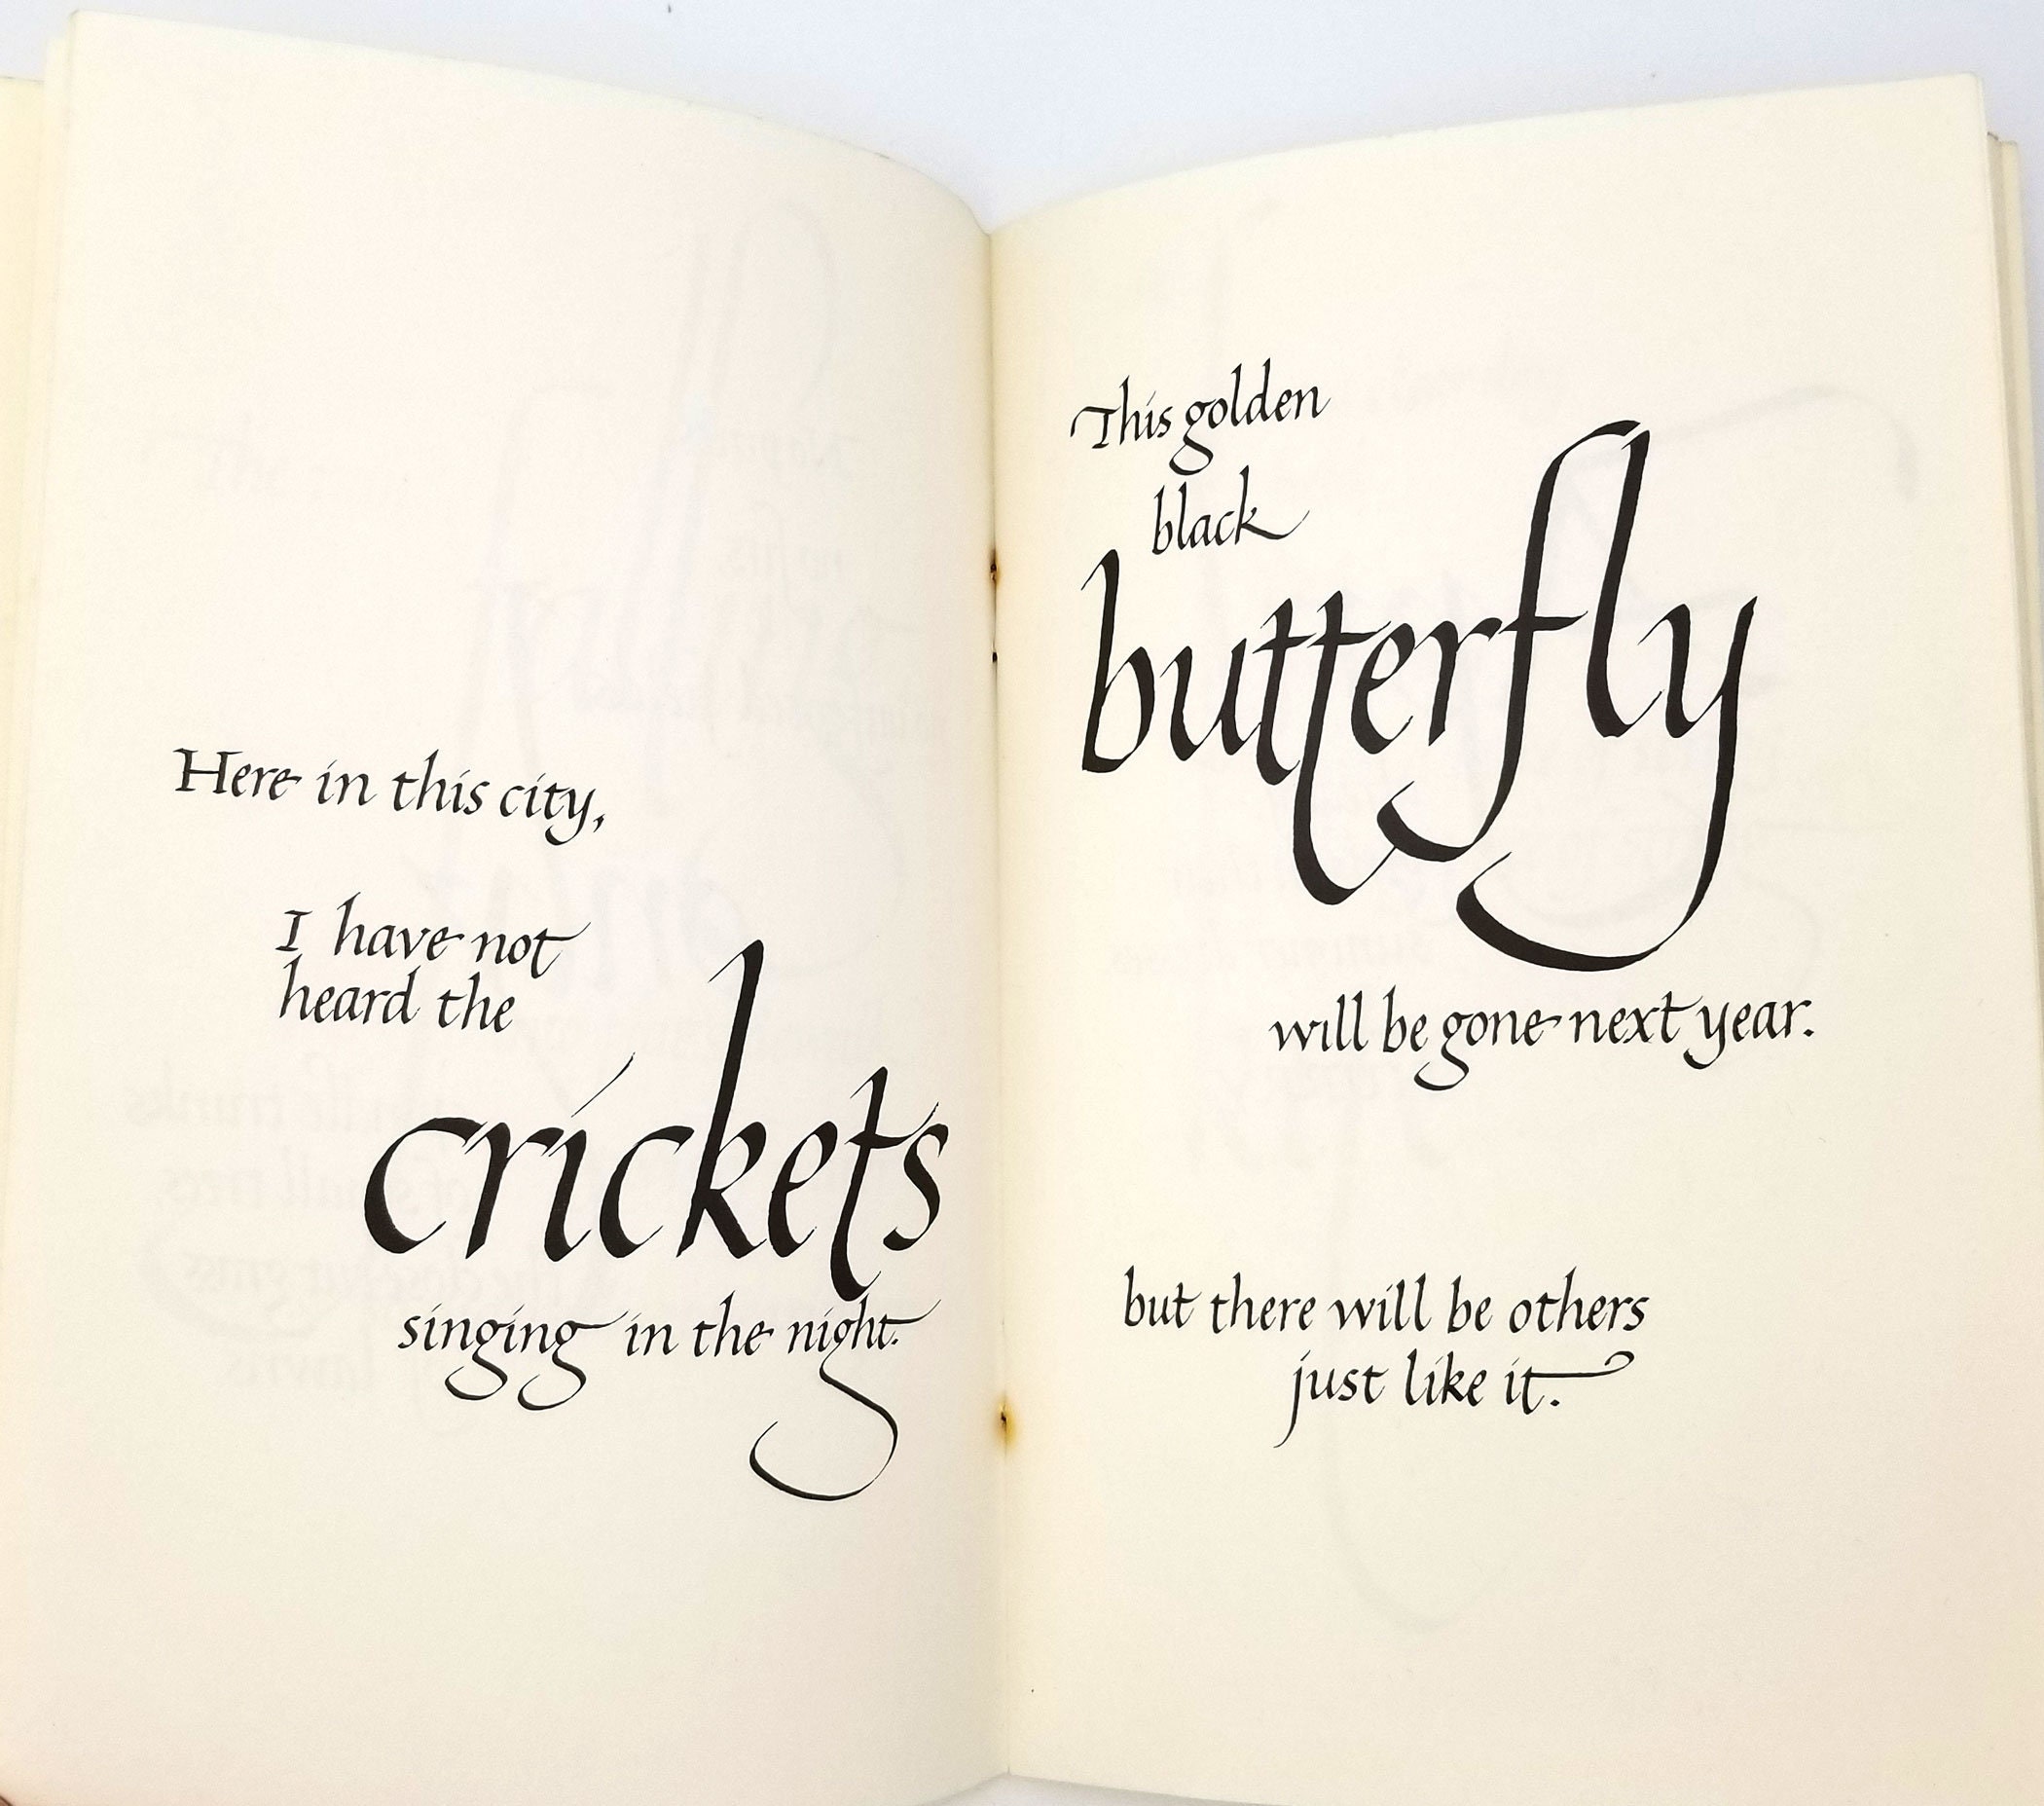 Here in this city,
I have not
heard the
crickets
singing in the night.
This golden
black
butterfly
will be gone next year.
but there will be others
just like it.